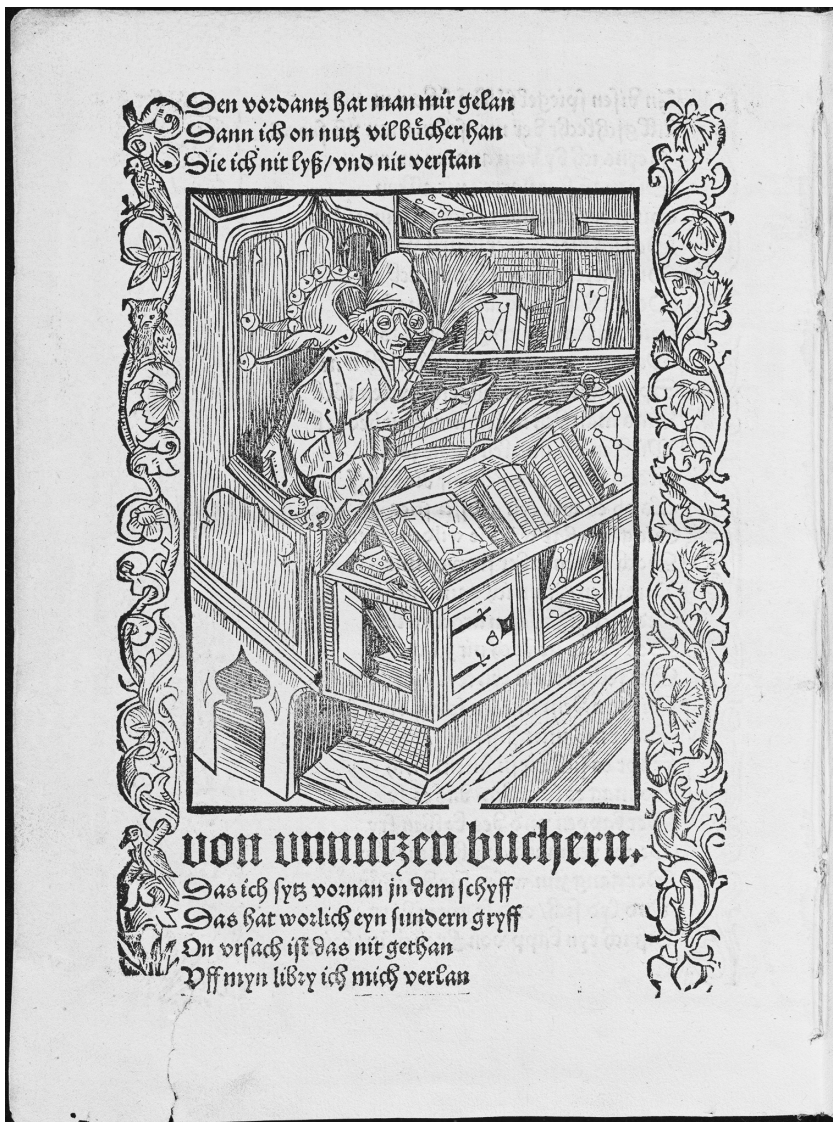 Den vordantz hat man mir gelan
Dann ich on nutz vil buͤcher han
Die ich nit lyß / vnd nit verstan
von vnnutzen buchern.
Das ich sytz vornan jn dem schyff
Das hat worlich eyn sundern gryff
On vrsach ist das nit gethan
Vff myn libry ich mich verlan